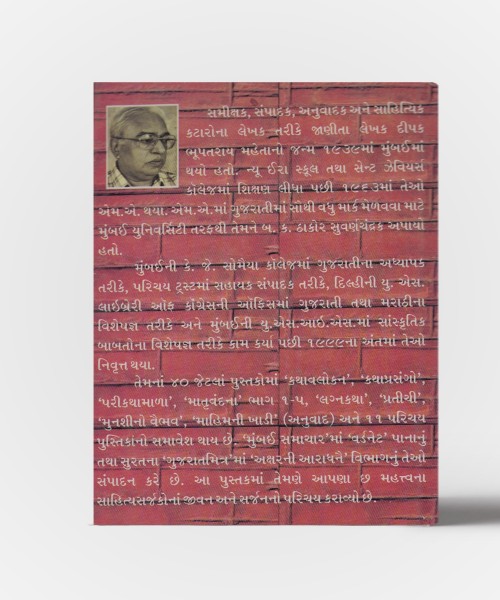 સમીક્ષક, સંપાદક, અનુવાદક અને સાહિત્યિક
કટારોના લેખક તરીકે જાણીતા લેખક દીપક
ભૂપતરાય મહેતાનો જન્મ ૧૯૩૯માં મુંબઈમાં
થયો હતો. ન્યૂ ઈરા સ્કૂલ તથા સેન્ટ ઝેવિયર્સ
કૉલેજમાં શિક્ષણ લીધા પછી ૧૯૬૩માં તેઓ
એમ.એ. થયા. એમ.એ.માં ગુજરાતીમાં સૌથી વધુ માર્ક મેળવવા માટે
મુંબઈ યુનિવર્સિટી તરફથી તેમને બ. ક. ઠાકોર સુવર્ણચંદ્રક અપાયો
હતો.
મુંબઈની કે. જે. સોમૈયા કૉલેજમાં ગુજરાતીના અધ્યાપક
તરીકે, પરિચય ટ્રસ્ટમાં સહાયક સંપાદક તરીકે, દિલ્હીની યુ. એસ.
લાઇબ્રેરી ઑફ કૉંગ્રેસની ઑફિસમાં ગુજરાતી તથા મરાઠીના
વિશેષજ્ઞ તરીકે અને મુંબઈની યુ.એસ.આઈ.એસ.માં સાંસ્કૃતિક
બાબતોના વિશેષજ્ઞ તરીકે કામ કર્યા પછી ૧૯૯૯ના અંતમાં તેઓ
નિવૃત્ત થયા.
તેમનાં ૪૦ જેટલાં પુસ્તકોમાં ‘કથાવલોકન’, ‘કથાપ્રસંગો’,
‘પરીકથામાળા’, ‘માતૃવંદના’ ભાગ ૧-૫, ‘લગ્નકથા’, ‘પ્રતીચી’,
‘મુનશીનો વૈભવ’, ‘માહિમની ખાડી’ (અનુવાદ) અને ૧૧ પરિચય
પુસ્તિકાનો સમાવેશ થાય છે. ‘મુંબઈ સમાચાર’માં ‘વર્ડનેટ’ પાનાનું
તથા સુરતના ‘ગુજરાતમિત્ર’માં ‘અક્ષરની આરાધના’ વિભાગનું તેઓ
સંપાદન કરે છે. આ પુસ્તકમાં તેમણે આપણા છ મહત્ત્વના
સાહિત્યસર્જકોનાં જીવન અને સર્જનનો પરિચય કરાવ્યો છે.